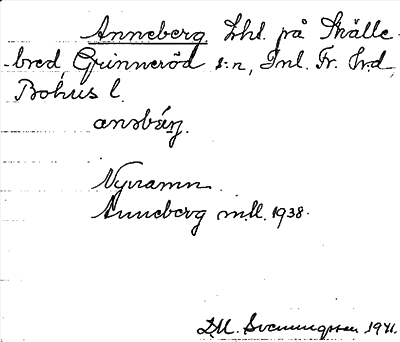 Anneberg Lhl. på Skälle-
bred, Grinneröd s:n, Inl. Fr. hrd,
Bohus l.
anəbærj.
Nynamn
Anneberg m.fl. 1938.
D.U. Svenningsson 1941.